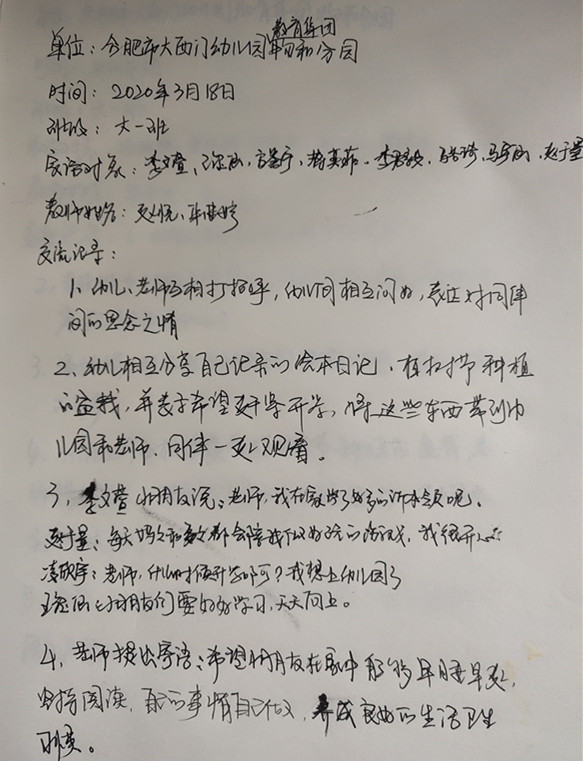 教育集团
单位：合肥市大西门幼儿园 分园
时间：2020年3月18日
班级：大一班
家访对象：李文萱、
教师姓名：赵悦、
交流记录：
1、幼儿、老师互相打招呼，幼儿间相互问好，表达对同伴
间的思念之情
2、幼儿相互分享自己记录的绘本日记、植树节种植
的盆栽，并表示希望 开学，将这些东西带到幼
儿园和老师、同伴一起观看。
3、李文萱小朋友说：老师，我在家学了好多的 呢。
每天妈妈和爸爸都会陪我做好玩的游戏，我很开心
老师，什么时候开学呀？我想上幼儿园了
小朋友们要好好学习，天天向上。
4、老师提出寄语：希望小朋友在家中能够早睡早起，
坚持阅读，自己的事情自己做，养成良好的生活卫生
习惯。